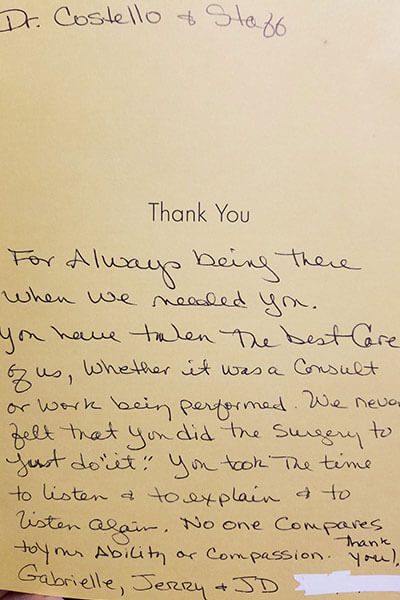 Dr. Costello & Staff
Thank You
For Always being there
when we needed you.
You have taken the best Care
of us, whether it was a Consult
or work being performed. We never
felt that you did the surgery to
"Just do "it." You took the time
to listen & to explain & to
listen again. No one Compares
to your Ability or Compassion. Thank
you!
Gabrielle, Jerry & JD